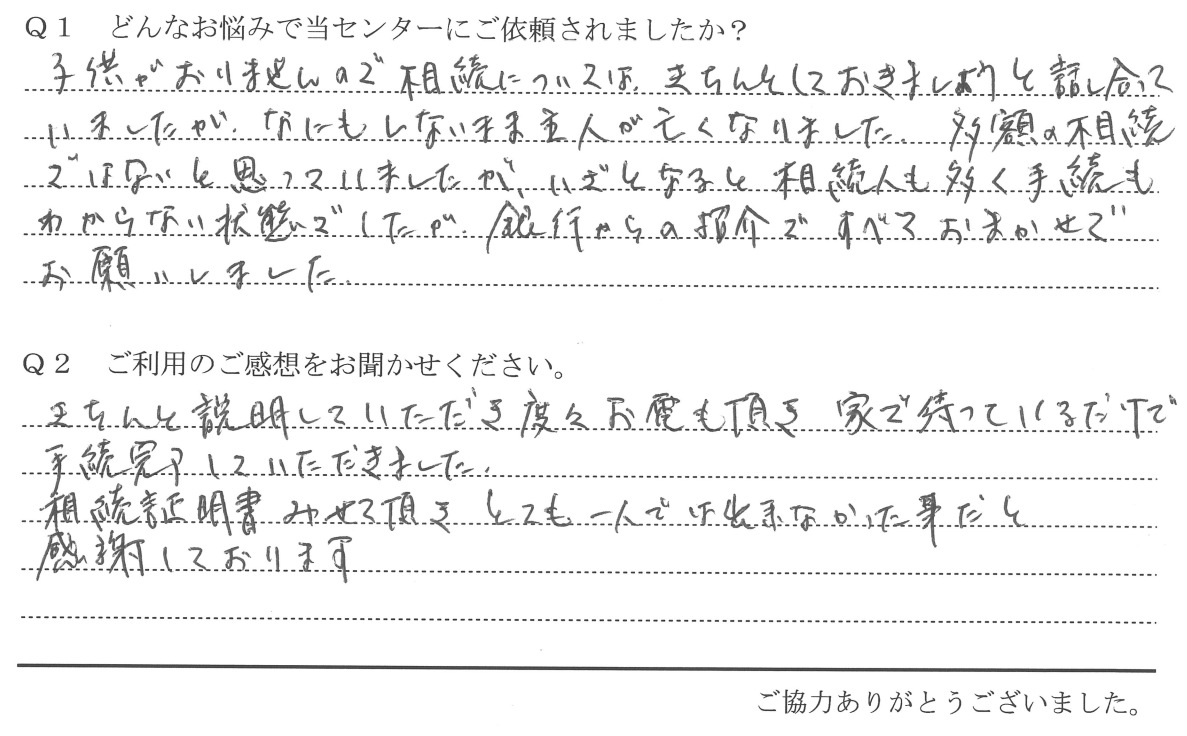 Q1 どんなお悩みで当センターにご依頼されましたか?
子供がおりませんので相続については、きちんとしておきましょうと話し合って
いましたが、なにもしないまま主人が亡くなりました。多額の相続
ではないと思っていましたが、いざとなると相続人も多く手続も
わからない状態でしたが、銀行からの紹介ですべておまかせで
お願いしました。
Q2 ご利用のご感想をお聞かせください。
きちんと説明していただき度々お電も頂き 家で待っているだけで
手続完了していただきました。
相続証明書みせて頂き とても一人では出来なかった事だと
感謝しております
ご協力ありがとうございました。